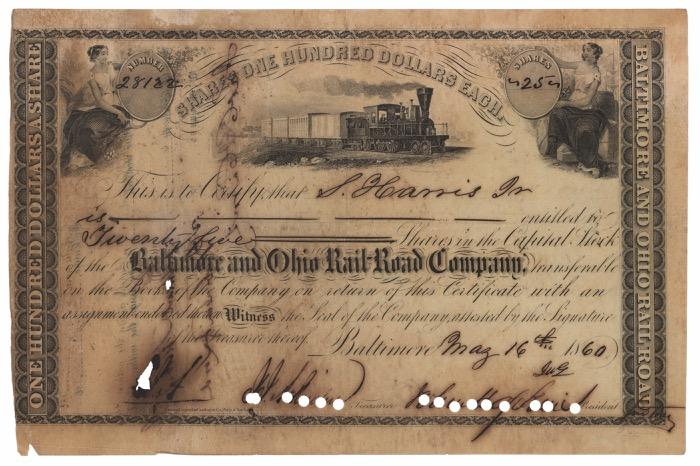 SHARES ONE HUNDRED DOLLARS EACH.
NUMBER
28132
SHARES
25
ONE HUNDRED DOLLARS A SHARE
BALTIMORE AND OHIO RAIL-ROAD
This is to Certify, that S. Harris Jr
is entitled to
Twenty five Shares in the Capital Stock
of the Baltimore and Ohio Rail-Road Company, transferable
on the Books of the Company on return of this Certificate with an
assignment endorsed thereon Witness the Seal of the Company, attested by the Signature
of the Treasurer thereof. Baltimore May 16th 1860
Treasurer
President